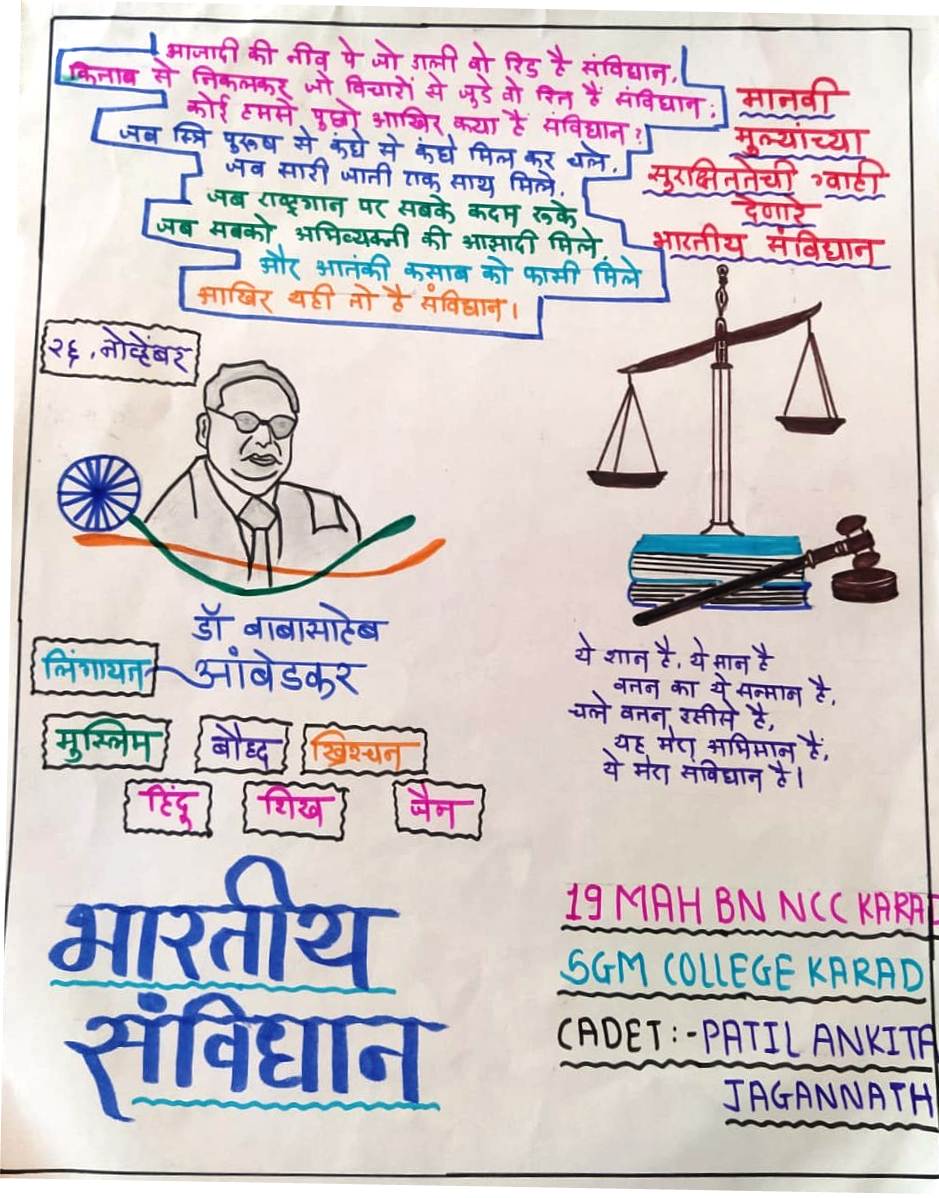 आजादी की नीव पे जो डाली वो रिड है संविधान,
किताब से निकलकर जो विचारों से जुडे वो रित हैं संविधान;
कोई हमसे पुछो आखिर क्या है संविधान?
जब स्त्रि पुरूष से कंधे से कंधे मिल कर चले,
जब सारी जाती एक साथ मिले,
जब राष्ट्रगान पर सबके कदम रूके
जब सबको अभिव्यक्ती की आझादी मिले,
और आतंकी कसाब को फासी मिले
आखिर यही तो है संविधान।
मानवी
मुल्यांच्या
सुरक्षिततेची ग्वाही
देणारे
भारतीय संविधान
२६, नोव्हेंबर
डॉ बाबासाहेब
आंबेडकर
लिंगायत
मुस्लिम बौध्द ख्रिस्चन
हिंदू शिख जैन
ये शान है, ये मान है
वतन का ये सन्मान है,
चले वतन इसीसे है,
यह मेरा अभिमान हैं,
ये मेरा संविधान है।
भारतीय
संविधान
19 MAH BN NCC KARAD
SGM COLLEGE KARAD
CADET:- PATIL ANKITA
JAGANNATH